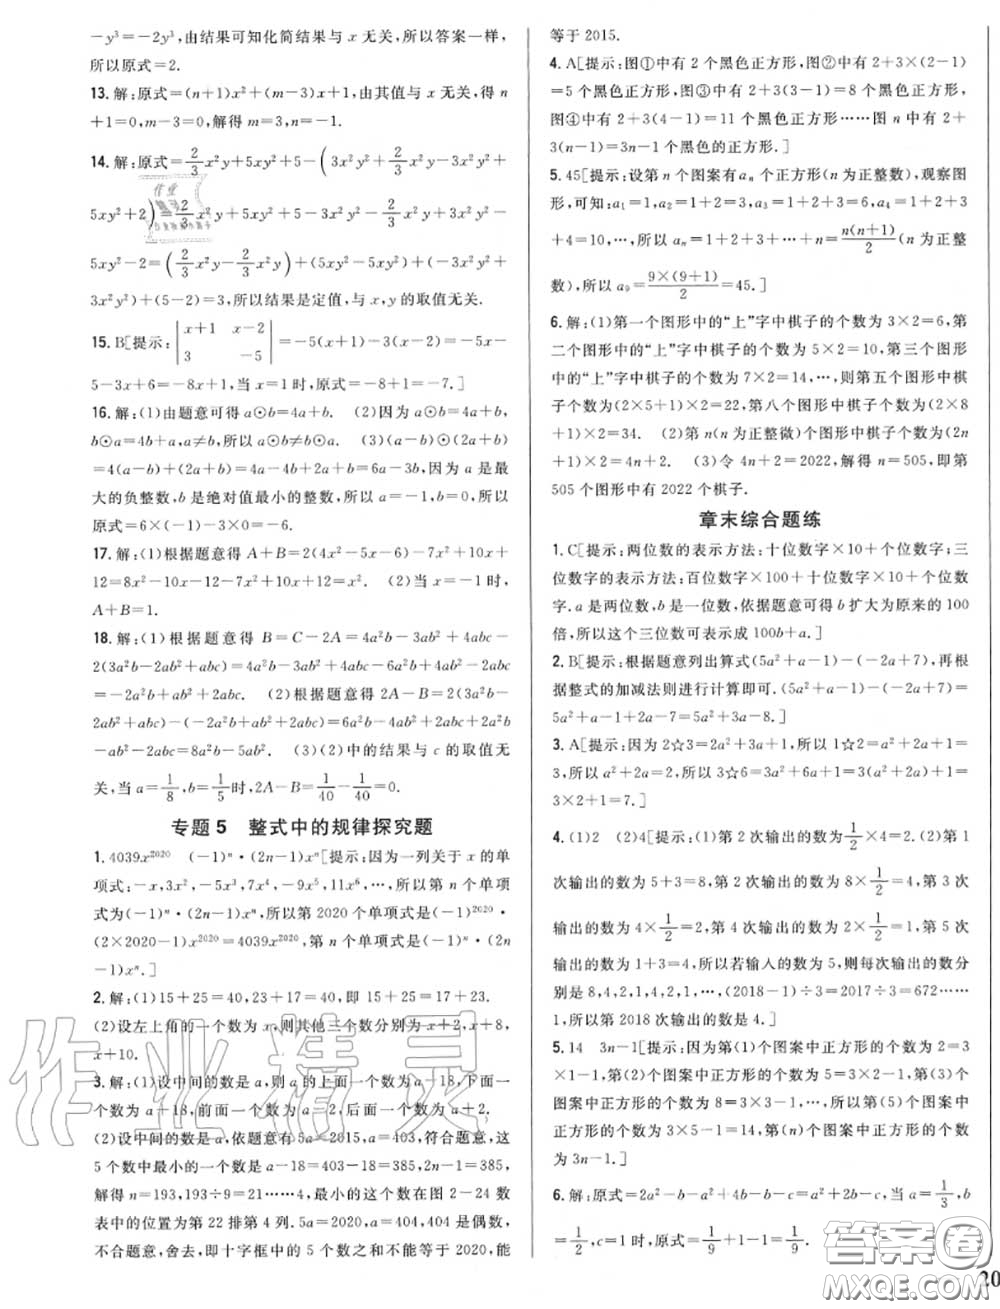 -y³=-2y³,由结果可知化简结果与 x 无关,所以答案一样,
所以原式=2.
13.解:原式=(n+1)x²+(m-3)x+1,由其值与 x 无关,得 n
+1=0,m-3=0,解得 m=3,n=-1.
14.解:原式=2/3x²y+5xy²+5-(3x²y³+2/3x²y-3x²y³+
5xy²+2)=2/3x²y+5xy²+5-3x²y³-2/3x²y+3x²y³-
5xy²-2=(2/3x²y-2/3x²y)+(5xy²-5xy²)+(-3x²y³+
3x²y³)+(5-2)=3,所以结果是定值,与 x,y 的取值无关.
15.B[提示:|x+1 x-2|
|3 -5|=-5(x+1)-3(x-2)=-5x-
5-3x+6=-8x+1,当 x=1 时,原式=-8+1=-7.]
16.解:(1)由题意可得 a⊙b=4a+b. (2)因为 a⊙b=4a+b,
b⊙a=4b+a,a≠b,所以 a⊙b≠b⊙a. (3)(a-b)⊙(2a+b)
=4(a-b)+(2a+b)=4a-4b+2a+b=6a-3b,因为 a 是最
大的负整数,b 是绝对值最小的整数,所以 a=-1,b=0,所以
原式=6×(-1)-3×0=-6.
17.解:(1)根据题意得 A+B=2(4x²-5x-6)-7x²+10x+
12=8x²-10x-12-7x²+10x+12=x². (2)当 x=-1 时,
A+B=1.
18.解:(1)根据题意得 B=C-2A=4a²b-5ab²+4abc-
2(3a²b-2ab²+abc)=4a²b-5ab²+4abc-6a²b+4ab²-2abc
=-2a²b-ab²+2abc. (2)根据题意得 2A-B=2(3a²b-
2ab²+abc)-(-2a²b-ab²+2abc)=6a²b-4ab²+2abc+2a²b
+ab²-2abc=8a²b-3ab². (3)(2)中的结果与 c 的取值无
关,当 a=1/8,b=1/5时,2A-B=1/40-1/40=0.
专题 5 整式中的规律探究题
1.4039x²⁰²⁰ (-1)ⁿ·(2n-1)xⁿ[提示:因为一列关于 x 的单
项式:-x,3x²,-5x³,7x⁴,-9x⁵,11x⁶,…,所以第 n 个单项
式为(-1)ⁿ·(2n-1)xⁿ,所以第 2020 个单项式是(-1)²⁰²⁰·
(2×2020-1)x²⁰²⁰=4039x²⁰²⁰,第 n 个单项式是(-1)ⁿ·(2n
-1)xⁿ.]
2.解:(1)15+25=40,23+17=40,即 15+25=23+17.
(2)设左上角的一个数为 x,则其他三个数分别为 x+2,x+8,
x+10.
3.解:(1)设中间的数是 a,则 a 的上面一个数为 a-18,下面一
个数为 a+18,前面一个数为 a-2,后面一个数为 a+2.
(2)设中间的数是 a,依题意有 5a=2015,a=403,符合题意,这
5 个数中最小的一个数是 a-18=403-18=385,2n-1=385,
解得 n=193,193÷9=21……4,最小的这个数在图 2-24 数
表中的位置为第 22 排第 4 列.5a=2020,a=404,404 是偶数,
不合题意,舍去,即十字框中的 5 个数之和不能等于 2020,能
等于 2015.
4.A[提示:图①中有 2 个黑色正方形,图②中有 2+3×(2-1)
=5 个黑色正方形,图③中有 2+3(3-1)=8 个黑色正方形,
图④中有 2+3(4-1)=11 个黑色正方形……图 n 中有 2+
3(n-1)=3n-1 个黑色的正方形.]
5.45[提示:设第 n 个图案有 aₙ 个正方形(n 为正整数),观察图
形,可知:a₁=1,a₂=1+2=3,a₃=1+2+3=6,a₄=1+2+3
+4=10,…,所以 aₙ=1+2+3+…+n=n(n+1)/2(n 为正整
数),所以 a₉=9×(9+1)/2=45.]
6.解:(1)第一个图形中的“上”字中棋子的个数为 3×2=6,第
二个图形中的“上”字中棋子的个数为 5×2=10,第三个图形
中的“上”字中棋子的个数为 7×2=14,…,则第五个图形中棋
子个数为(2×5+1)×2=22,第八个图形中棋子个数为(2×8
+1)×2=34. (2)第 n(n 为正整微)个图形中棋子个数为(2n
+1)×2=4n+2. (3)令 4n+2=2022,解得 n=505,即第
505 个图形中有 2022 个棋子.
章末综合题练
1.C[提示:两位数的表示方法:十位数字×10+个位数字;三
位数字的表示方法:百位数字×100+十位数字×10+个位数
字.a 是两位数,b 是一位数,依据题意可得 b 扩大为原来的 100
倍,所以这个三位数可表示成 100b+a.]
2.B[提示:根据题意列出算式(5a²+a-1)-(-2a+7),再根
据整式的加减法则进行计算即可.(5a²+a-1)-(-2a+7)=
5a²+a-1+2a-7=5a²+3a-8.]
3.A[提示:因为 2☆3=2a²+3a+1,所以 1☆2=a²+2a+1=
3,所以 a²+2a=2,所以 3☆6=3a²+6a+1=3(a²+2a)+1=
3×2+1=7.]
4.(1)2 (2)4[提示:(1)第 2 次输出的数为1/2×4=2.(2)第 1
次输出的数为 5+3=8,第 2 次输出的数为 8×1/2=4,第 3 次
输出的数为 4×1/2=2,第 4 次输出的数为 2×1/2=1,第 5 次
输出的数为 1+3=4,所以若输人的数为 5,则每次输出的数分
别是 8,4,2,1,4,2,1,…,(2018-1)÷3=2017÷3=672……
1.所以第 2018 次输出的数是 4.]
5.14 3n-1[提示:因为第(1)个图案中正方形的个数为 2=3
×1-1,第(2)个图案中正方形的个数为 5=3×2-1,第(3)个
图案中正方形的个数为 8=3×3-1,所以第(5)个图案中正方
形的个数为 3×5-1=14,第(n)个图案中正方形的个数
为 3n-1.]
6.解:原式=2a²-b-a²+4b-b-c=a²+2b-c,当 a=1/3,b
=1/2,c=1 时,原式=1/9+1-1=1/9.
作业精灵
答案圈
MXQE.COM
20